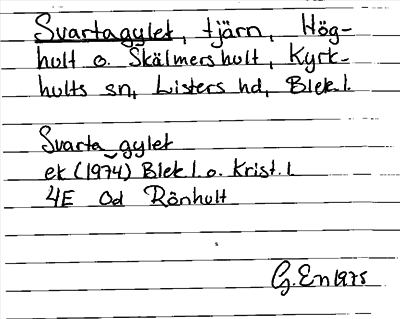 Svartagylet, tjärn, Hög-
hult o. Skälmershult, Kyrk-
hults sn, Listers hd, Blek. l.
Svarta gylet
ek (1974) Blek. l. o. Krist. l.
4E Od Rönhult
G. En 1975